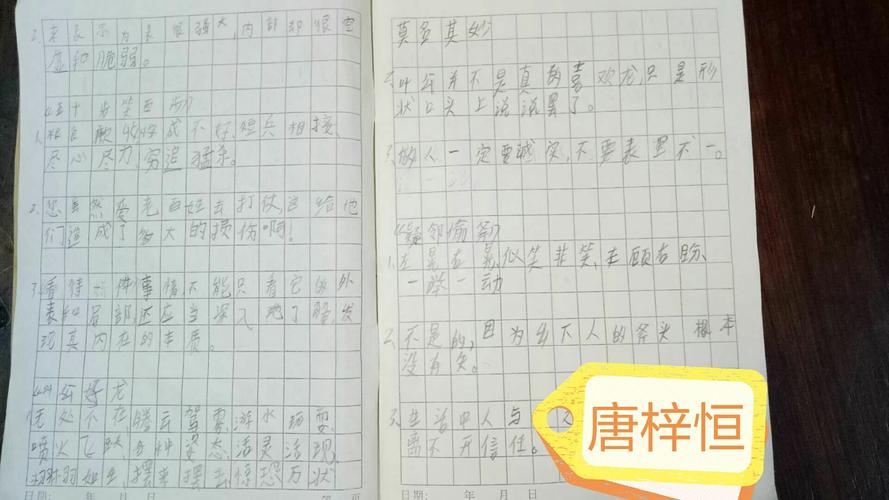 2、来表示为表很强大,内部却很空
虚和脆弱。
《五十步笑百步》
1、粮食收成不好,短兵相接、
尽心尽力、穷追猛杀。
2、您虽然爱老百姓去打仗,这给他
们造成了多大的损伤啊!
3、看待一件事情,不能只看它的外
表和局部,还应当深入地了解,发
现其内在的本质。
《叶公好龙》
无处不在,腾云驾雾,游水玩耍、
喷火飞跃、各种姿态,活灵活现、
栩栩如生,摆来摆去,惊恐万状
日期: 年 月 日 页
莫名其妙
2、叶公并不是真的喜欢龙,只是形
状口头上说说罢了。
3、做人一定要诚实,不要表里不一。
《疑邻偷斧》
1、左晃右晃,似笑非笑,左顾右盼、
一举一动
2、不是的,因为乡下人的斧头根本
没有失。
3、生活中人与人
离不开信任。
日期: 年 月 日
唐梓恒